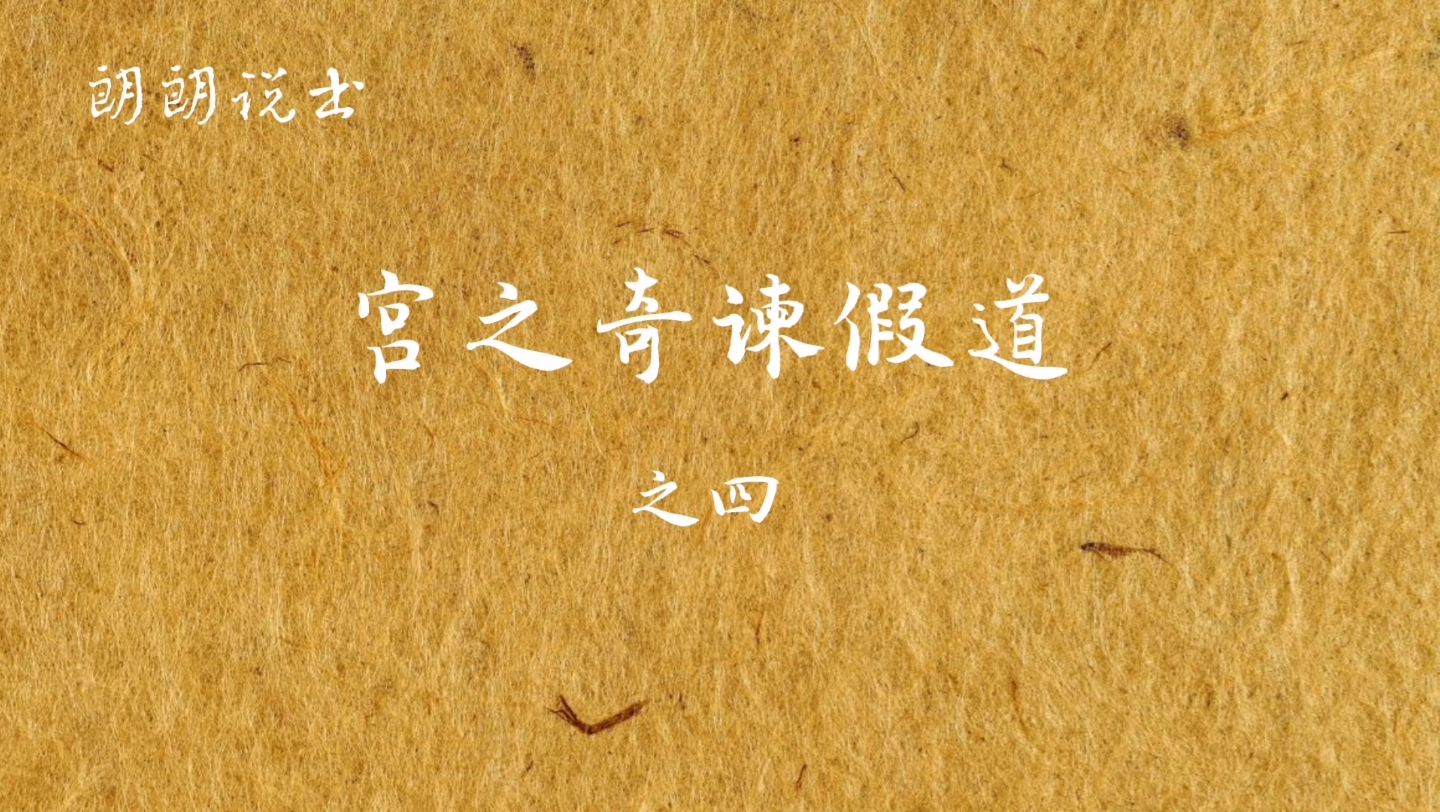 朗朗说士
宫之奇谏假道
之四